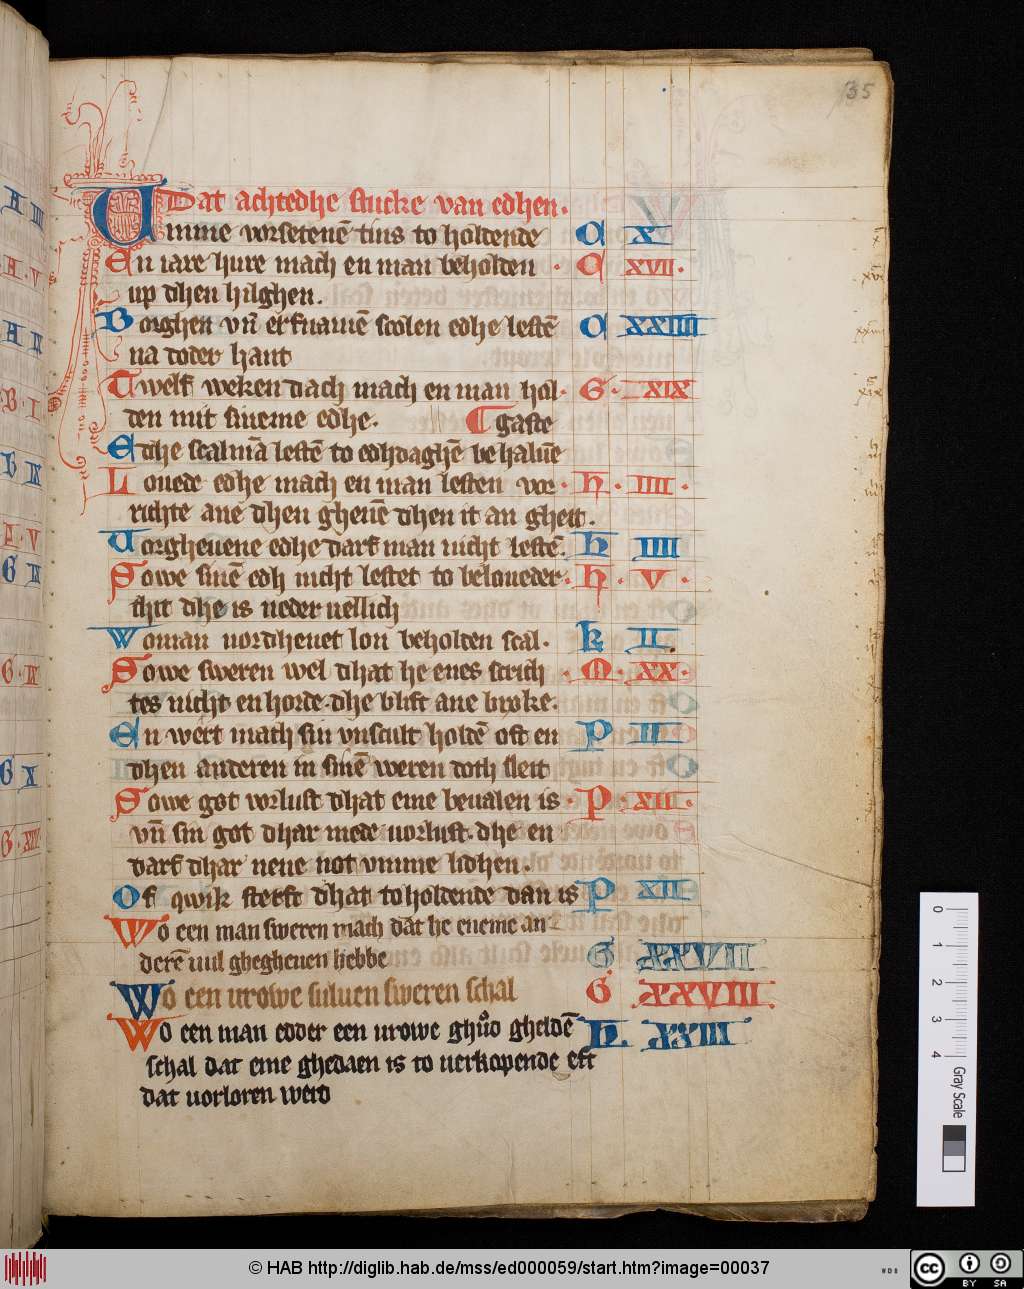 35
Dat achtedhe stucke van edhen.
Vmme vorsetenē tins to holdende C X
En iare hure mach en man beholden · C XVII ·
up dhen hilghen.
Borghen vn̄ erfnamē scolen edhe lestē C XXIIII
na doder hant
Twelf weken dach mach en man hol· G · XIX
den mit sineme edhe. gaste
Edhe scalmā lestē to edhdaghē behaluē
Louede edhe mach en man lesten vor· H · IIII ·
richte ane dhen gheuē dhen it an gheit.
Vorgheuene edhe darf man nicht lestē. H IIII
Sowe sinē edh nicht lestet to beloueder· H · V ·
thit dhe is neder uellich
Woman uordhenet lon beholden scal. K II.
Sowe sweren wel dhat he enes strich · M · XX ·
tes nicht en horde.dhe blift ane broke.
En wert mach sin vnscult holdē oft en P II
dhen anderen in sinē weren doth sleit
Sowe got vorlust dhat eme beualen is· P · XII ·
vn̄ sin got dhar mede uorlust.dhe en
darf dhar nene not vmme lidhen.
Of qwik sterft dhat to holdende dan is P XII
Wo een man sweren mach dat he eneme an-
derē uul ghegheuen hebbe G XXVII
Wo een urowe suluen sweren schal G XXVIII
Wo een man edder een urowe ghůd gheldē N XXIII
schal dat eme ghedaen is to uerkopende eft
dat uorloren werd
A III
A · V
A IX
B · I
B IX
A · V
G IX
G · IX
G X
G · XIX
0 1 2 3 4 Gray Scale
© HAB http://diglib.hab.de/mss/ed000059/start.htm?image=00037
WDB
cc BY SA